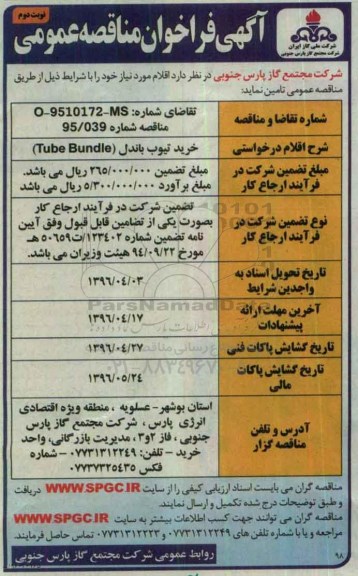 نوبت دوم
آگهی فراخوان مناقصه عمومی
شرکت ملی گاز ایران
شرکت مجتمع گاز پارس جنوبی
شرکت مجتمع گاز پارس جنوبی در نظر دارد اقلام مورد نیاز خود را با شرایط ذیل از طریق
مناقصه عمومی تامین نماید:
شماره تقاضا و مناقصه
تقاضای شماره: O-9510172-MS
مناقصه شماره 95/039
شرح اقلام درخواستی
خرید تیوب باندل (Tube Bundle)
مبلغ تضمین شرکت در
فرآیند ارجاع کار
مبلغ تضمین ۲۶۵/۰۰۰/۰۰۰ ریال می باشد.
مبلغ برآورد ۵/۳۰۰/۰۰۰/۰۰۰ ریال می باشد
نوع تضمین شرکت در
فرآیند ارجاع کار
تضمین شرکت در فرآیند ارجاع کار
بصورت یکی از تضامین قابل قبول وفق آیین
نامه تضمین شماره ۱۲۳۴۰۲/ت۵۰۶۵۹ هـ
مورخ ۹۴/۰۹/۲۲ هیئت وزیران می باشد.
تاریخ تحویل اسناد به
واجدین شرایط
۱۳۹۶/۰۴/۰۳
آخرین مهلت ارائه
پیشنهادات
۱۳۹۶/۰۴/۱۷
تاریخ گشایش پاکات فنی
۱۳۹۶/۰۴/۲۷
تاریخ گشایش پاکات
مالی
۱۳۹۶/۰۵/۲۴
آدرس و تلفن
مناقصه گزار
استان بوشهر- عسلویه ، منطقه ویژه اقتصادی
انرژی پارس ، شرکت مجتمع گاز پارس
جنوبی ، فاز ۲و۳ ، مدیریت بازرگانی، واحد
خرید – تلفن: ۰۷۷۳۱۳۱۲۲۴۹ – شماره
فکس ۰۷۷۳۷۳۲۵۴۳۵
مناقصه گران می بایست اسناد ارزیابی کیفی را از سایت WWW.SPGC.IR دریافت
و طبق توضیحات درج شده تکمیل و ارسال نمایند.
مناقصه گران می توانند جهت کسب اطلاعات بیشتر به سایت WWW.SPGC.IR
مراجعه و یا با شماره تلفن های ۰۷۷۳۱۳۱۲۲۴۹ و ۰۷۷۳۱۳۱۲۲۲۳ تماس حاصل فرمایند.
روابط عمومی شرکت مجتمع گاز پارس جنوبی
۹۸
ParsNamadData
۰۲۱-۸۸۳۴۹۶۷